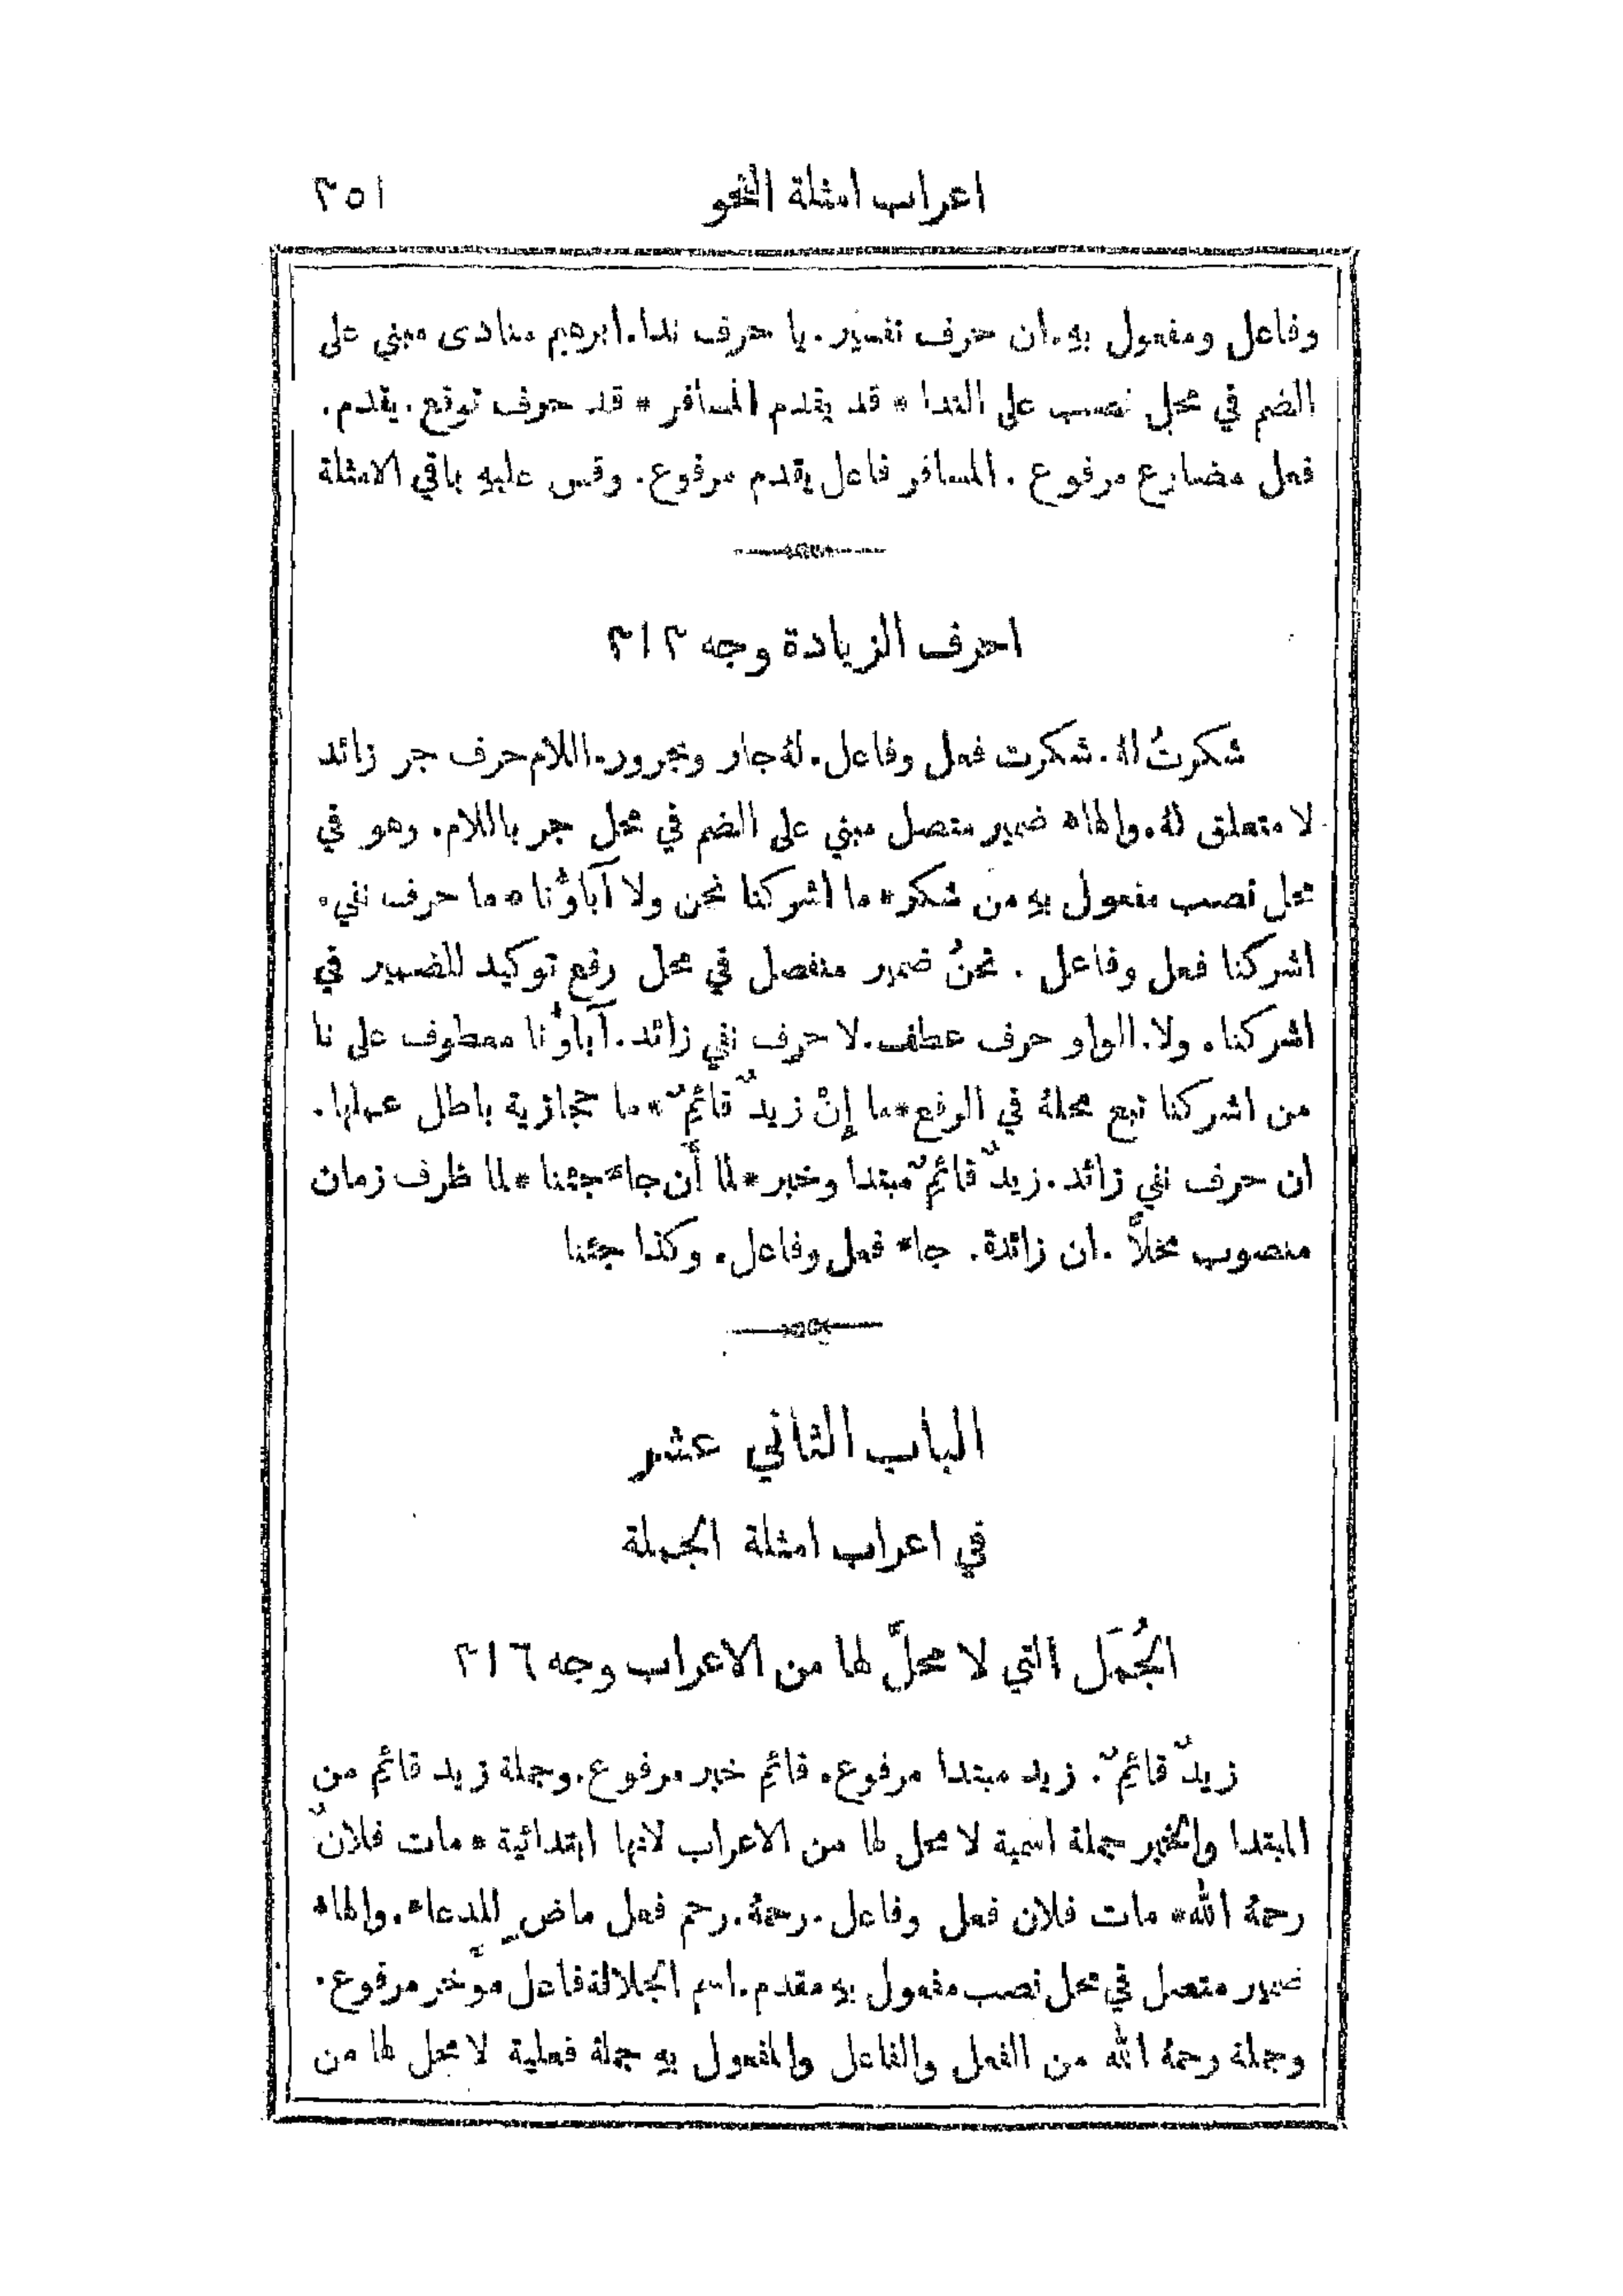 اعراب امثلة النحو ٣٥١
وفاعل ومفعول بهِ.ان حرف تفسير. يا حرف ندا.ابرهيم منادى مبني على
الضم في محل نصب على الندا * قد يقدم المسافر * قد حرف توقع. يقدم.
فعل مضارع مرفوع . المسافر فاعل يقدم مرفوع. وقس عليهِ باقي الامثلة
احرف الزيادة وجه ٣١٢
شكرتُ لهُ. شكرت فعل وفاعل. لهُ جار ومجرور.اللام حرف جر زائد
لا متعلق لهُ.والهاء ضمير متصل مبني على الضم في محل جر باللام. وهو في
محل نصب مفعول بهِ من شكر* ما اشركنا نحن ولا آباوُنا* ما حرف نفي.
اشركنا فعل وفاعل . نحنُ ضمير منفصل في محل رفع توكيد للضمير في
اشركنا. ولا. الواو حرف عطف. لا حرف نفي زائد. آباوُنا معطوف على نا
من اشركنا تبع محلهُ في الرفع*ما إِنْ زيدٌ قائمٌ * ما حجازية باطل عملها.
ان حرف نفي زائد. زيدٌ قائمٌ مبتدا وخبر*لما أَن جاءَ جئنا *لما ظرف زمان
منصوب محلاًّ .ان زائدة. جاء فعل وفاعل. وكذا جئنا
الباب الثاني عشر
في اعراب امثلة الجملة
الجُمَل التي لا محلَّ لها من الاعراب وجه ٣١٦
زيدٌ قائمٌ. زيد مبتدا مرفوع. قائم خبر مرفوع.وجملة زيد قائم من
المبتدا والخبر جملة اسمية لا محل لها من الاعراب لانها ابتدائية * مات فلانٌ
رحمهُ الله* مات فلان فعل وفاعل. رحمهُ. رحم فعل ماضٍ للدعاء. والهاء
ضمير متصل في محل نصب مفعول بهِ مقدم.اسم الجلالة فاعل موَّخر مرفوع.
وجملة رحمهُ الله من الفعل والفاعل والمفعول بهِ جملة فعلية لا محل لها من